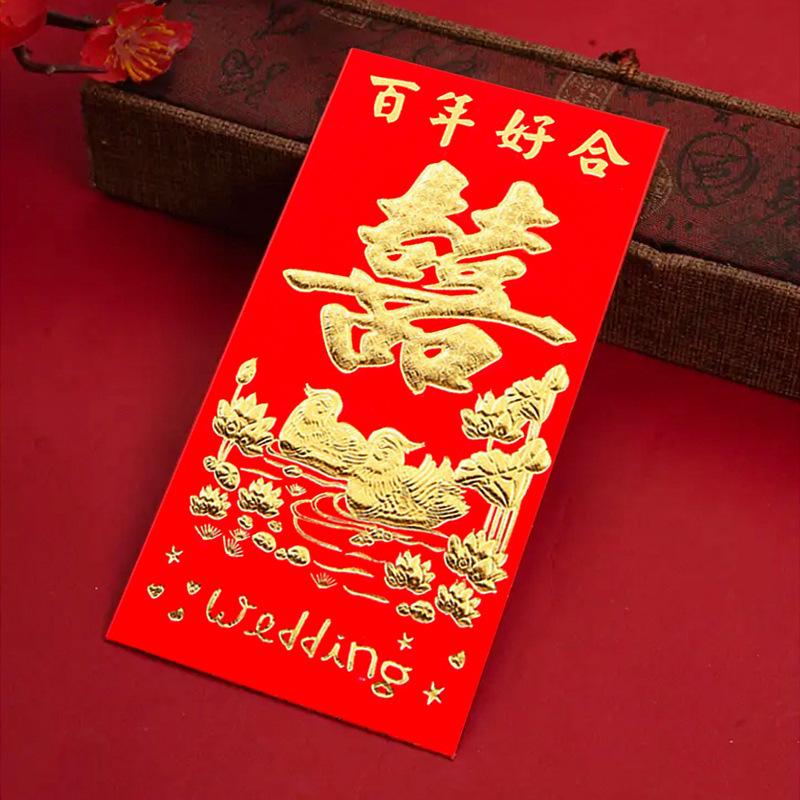 百年好合
囍
Wedding